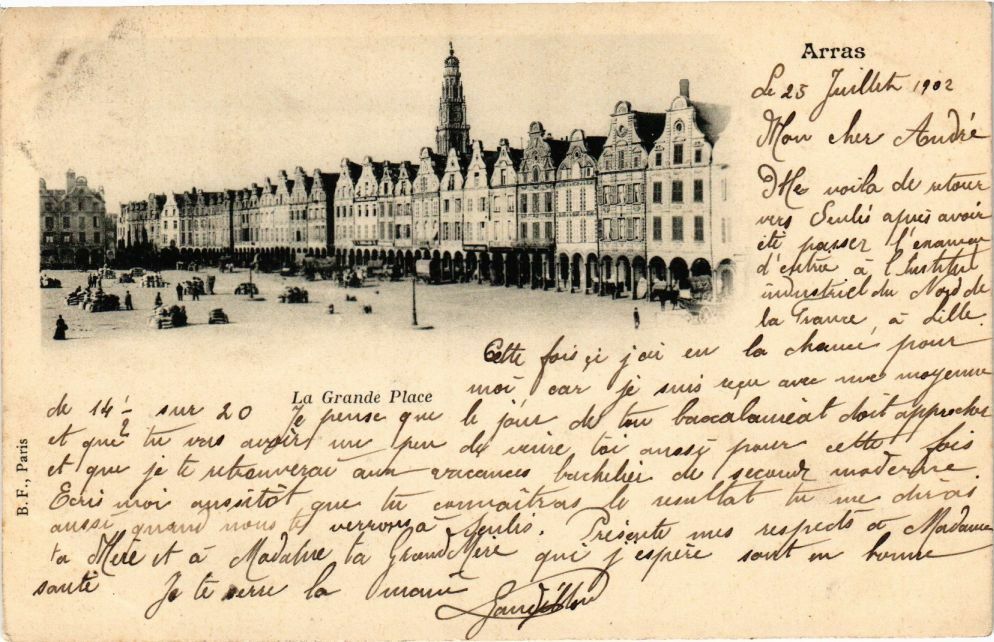 Arras
Le 25 Juillet 1902
Mon cher André
Me voila de retour
vers Senlis après avoir
été passer l'examen
d'entrée à l'Institut
industriel du Nord de
la France, à Lille.
Cette fois çi j'ai eu la chance pour
moi car je suis reçu avec une moyenne
La Grande Place
de 14 sur 20 Je pense que le jour de ton baccalaureat doit approcher
et que tu vas avoir un peu de veine toi aussi pour cette fois
et que je te retrouverai aux vacances bachelier de seconde moderne
Ecris moi aussitôt que tu connaîtras le resultat tu me diras
aussi quand nous te verrons à Senlis. Présente mes respects à Madame
ta Mère et à Madame ta Grand Mère qui j'espère sont en bonne
santé Je te serre la main
B. F., Paris